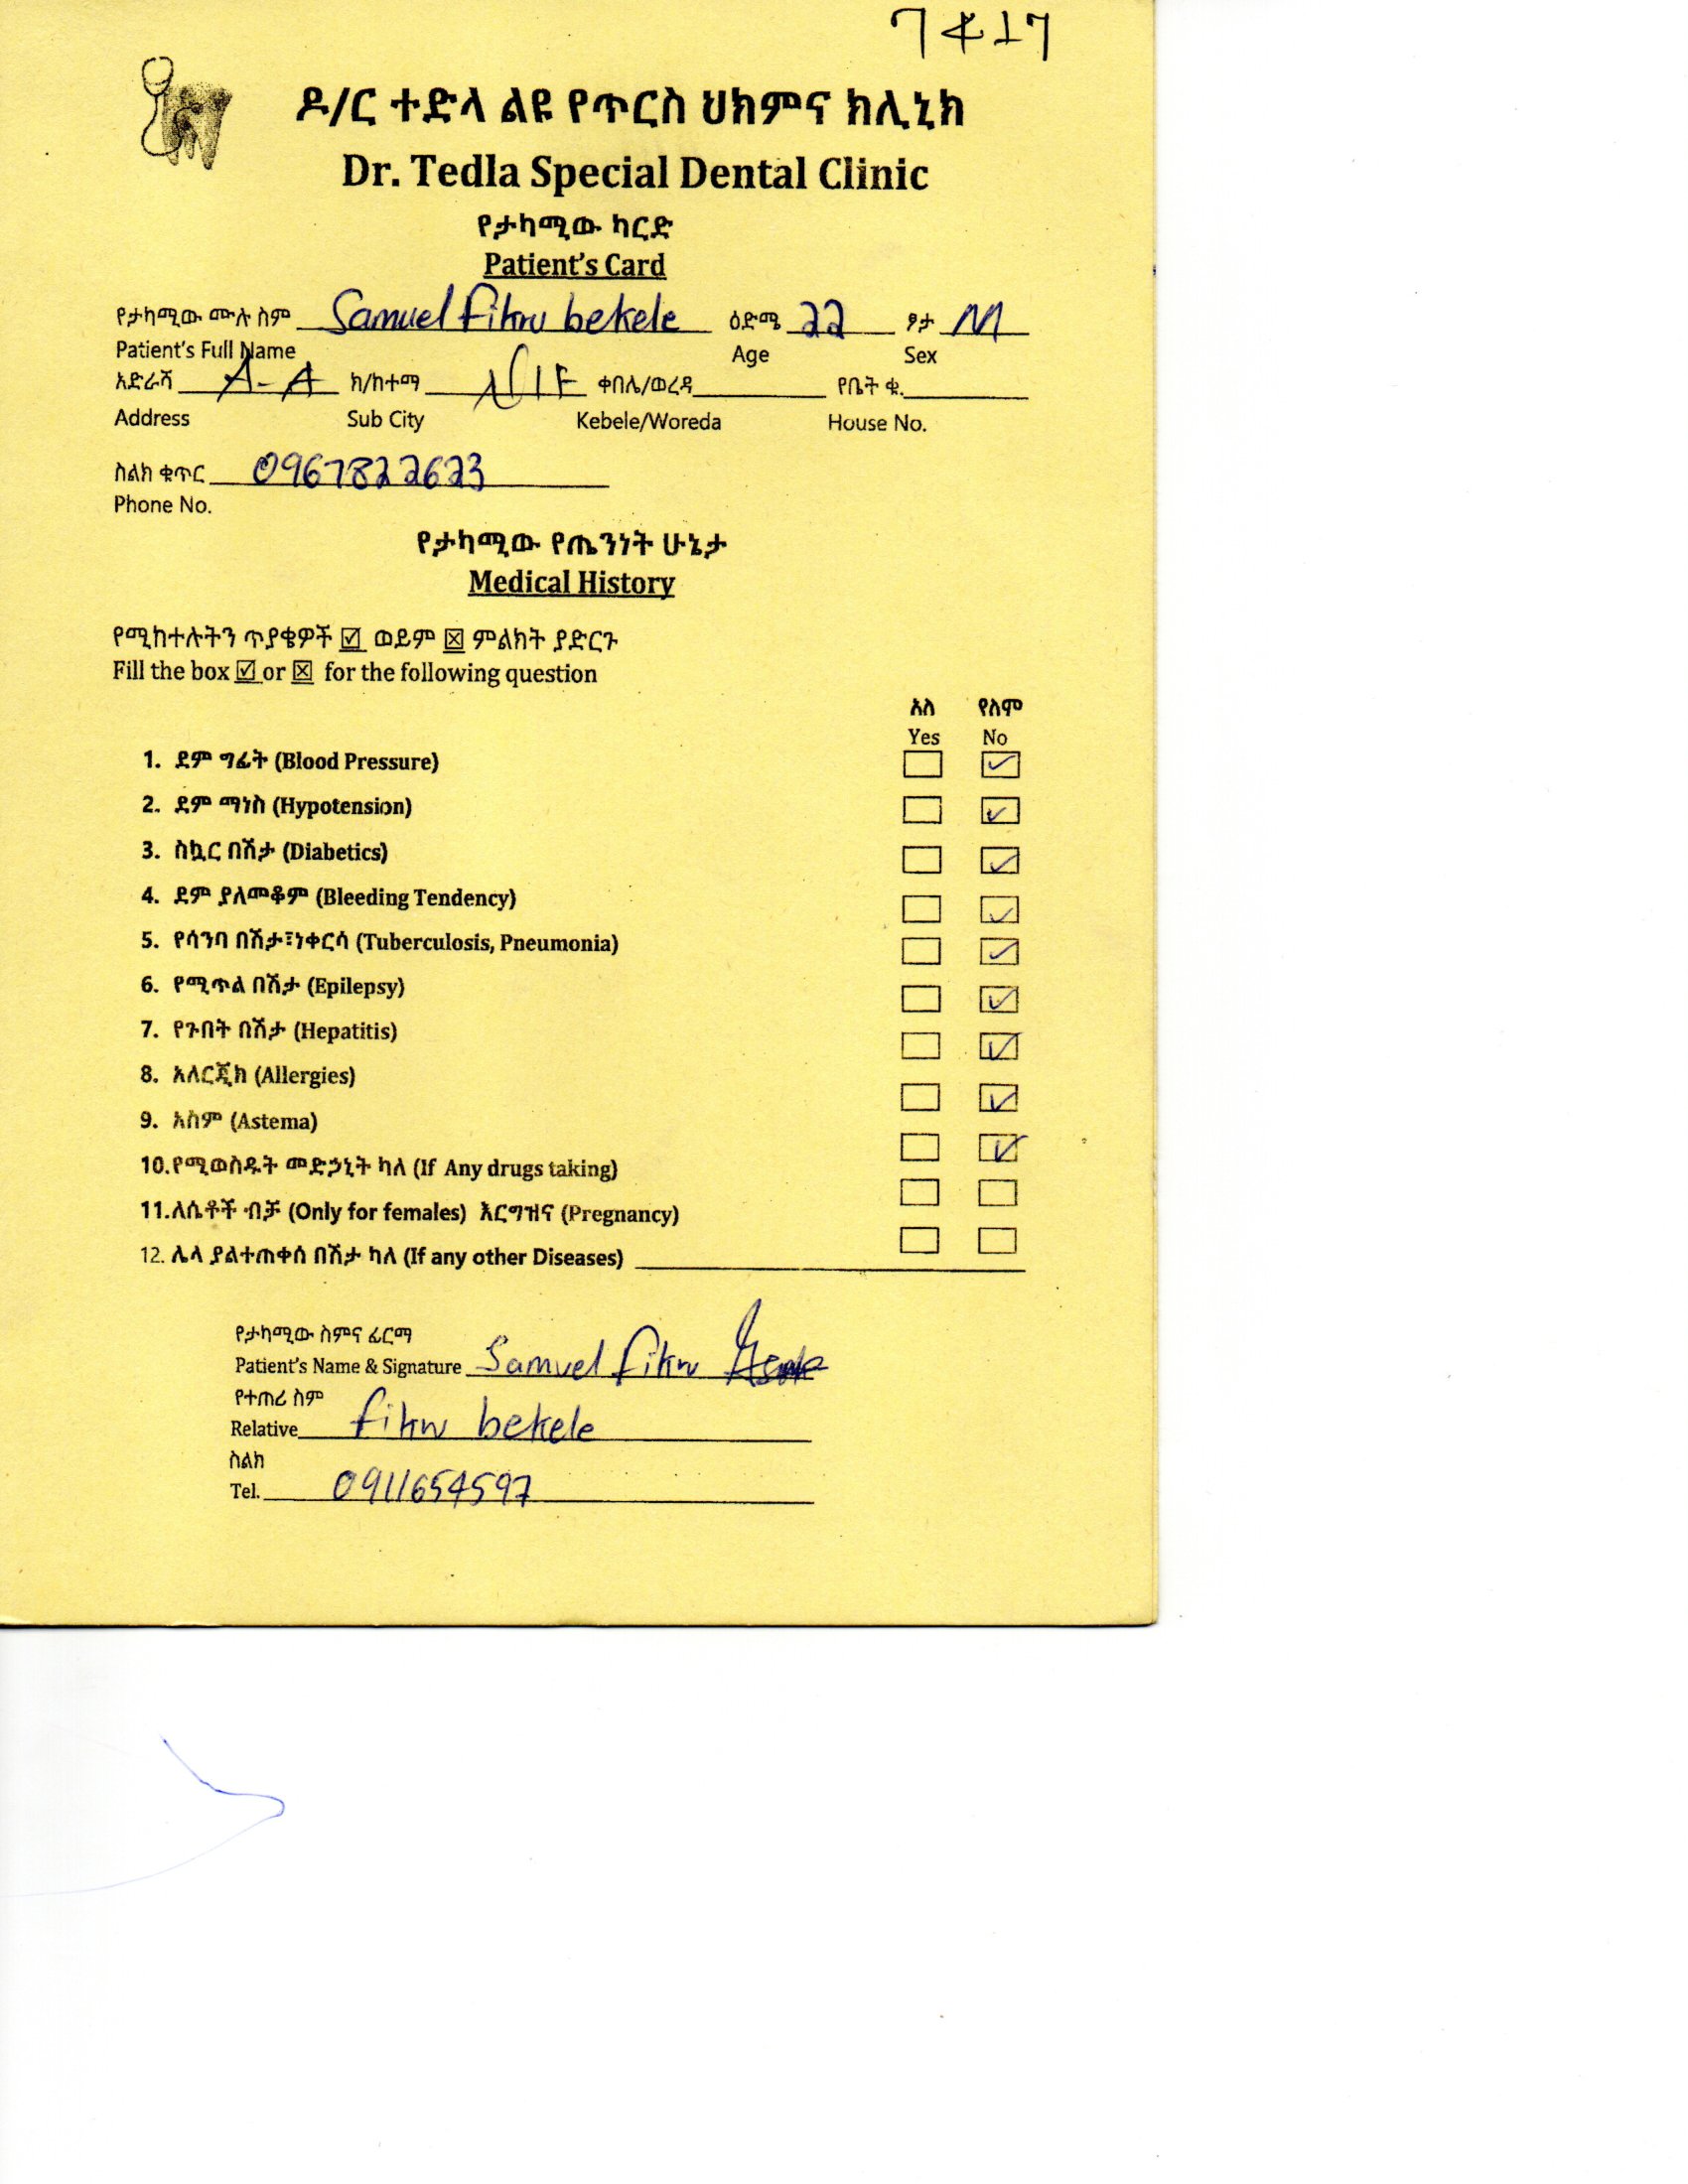 7417
ዶ/ር ተድላ ልዩ የጥርስ ህክምና ክሊኒክ
Dr. Tedla Special Dental Clinic
የታካሚው ካርድ
Patient's Card
የታካሚው ሙሉ ስም Samuel fikru bekele ዕድሜ 22 ፆታ M
Patient's Full Name Age Sex
አድራሻ A-A ክ/ከተማ ቀበሌ/ወረዳ የቤት ቁ.
Address Sub City Kebele/Woreda House No.
ስልክ ቁጥር 0967822623
Phone No.
የታካሚው የጤንነት ሁኔታ
Medical History
የሚከተሉትን ጥያቄዎች ☑ ወይም ☒ ምልክት ያድርጉ
Fill the box ☑ or ☒ for the following question
አለ የለም
Yes No
1. ደም ግፊት (Blood Pressure) ☐ ☑
2. ደም ማነስ (Hypotension) ☐ ☑
3. ስኳር በሽታ (Diabetics) ☐ ☑
4. ደም ያለመቆም (Bleeding Tendency) ☐ ☑
5. የሳንባ በሽታ፣ነቀርሳ (Tuberculosis, Pneumonia) ☐ ☑
6. የሚጥል በሽታ (Epilepsy) ☐ ☑
7. የጉበት በሽታ (Hepatitis) ☐ ☑
8. አለርጂክ (Allergies) ☐ ☑
9. አስም (Astema) ☐ ☑
10.የሚወስዱት መድኃኒት ካለ (If Any drugs taking) ☐ ☐
11.ለሴቶች ብቻ (Only for females) እርግዝና (Pregnancy) ☐ ☐
12. ሌላ ያልተጠቀሰ በሽታ ካለ (If any other Diseases)
የታካሚው ስምና ፊርማ
Patient's Name & Signature Samuel fikru
የተጠሪ ስም
Relative fikru bekele
ስልክ
Tel. 0911654597